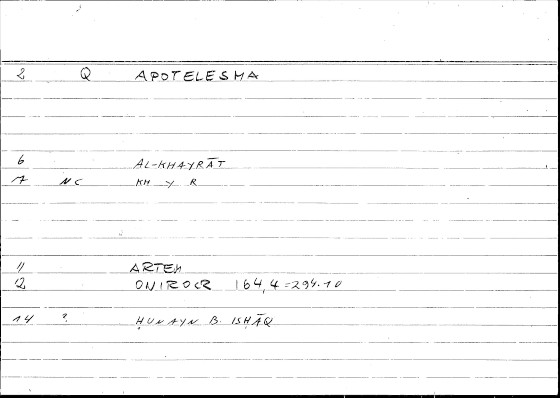 2 Q APOTELESMA
6 AL-KHAYRĀT
7 NC KH Y R
11 ARTEM
12 ONIROCR 164,4=294.10
14 ? ḤUNAYN B. ISḤĀQ